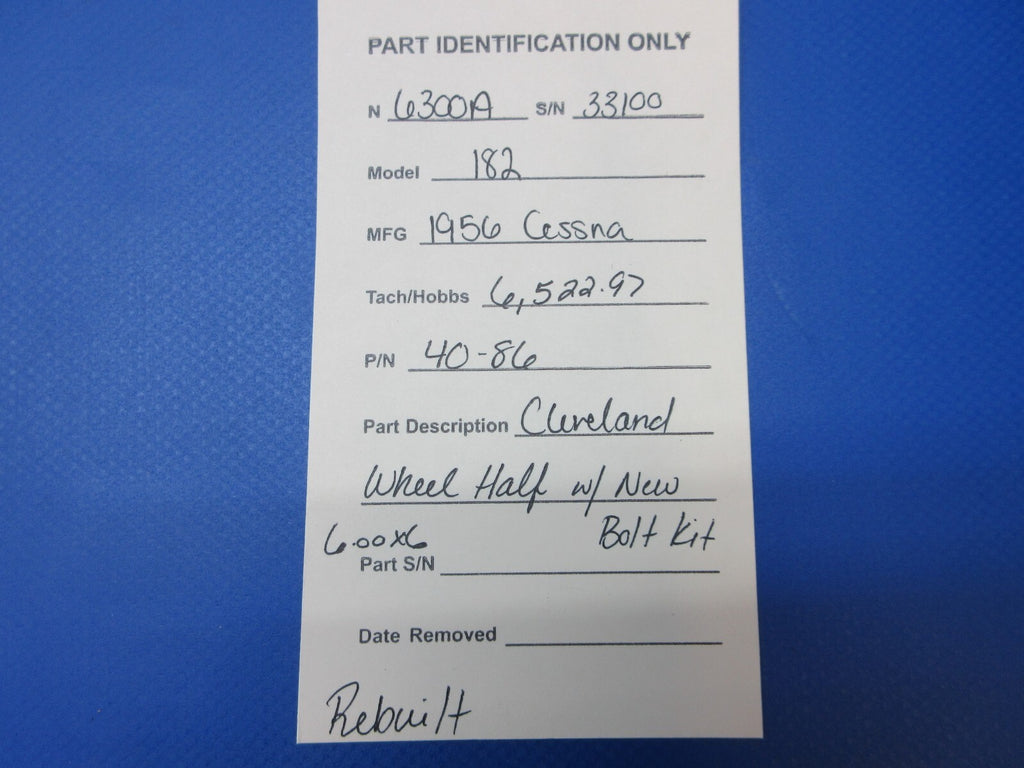 PART IDENTIFICATION ONLY
N 6300A S/N 33100
Model 182
MFG 1956 Cessna
Tach/Hobbs 6,522.97
P/N 40-86
Part Description Cleveland
Wheel Half w/ New
6.00x6 Bolt Kit
Part S/N
Date Removed
Rebuilt